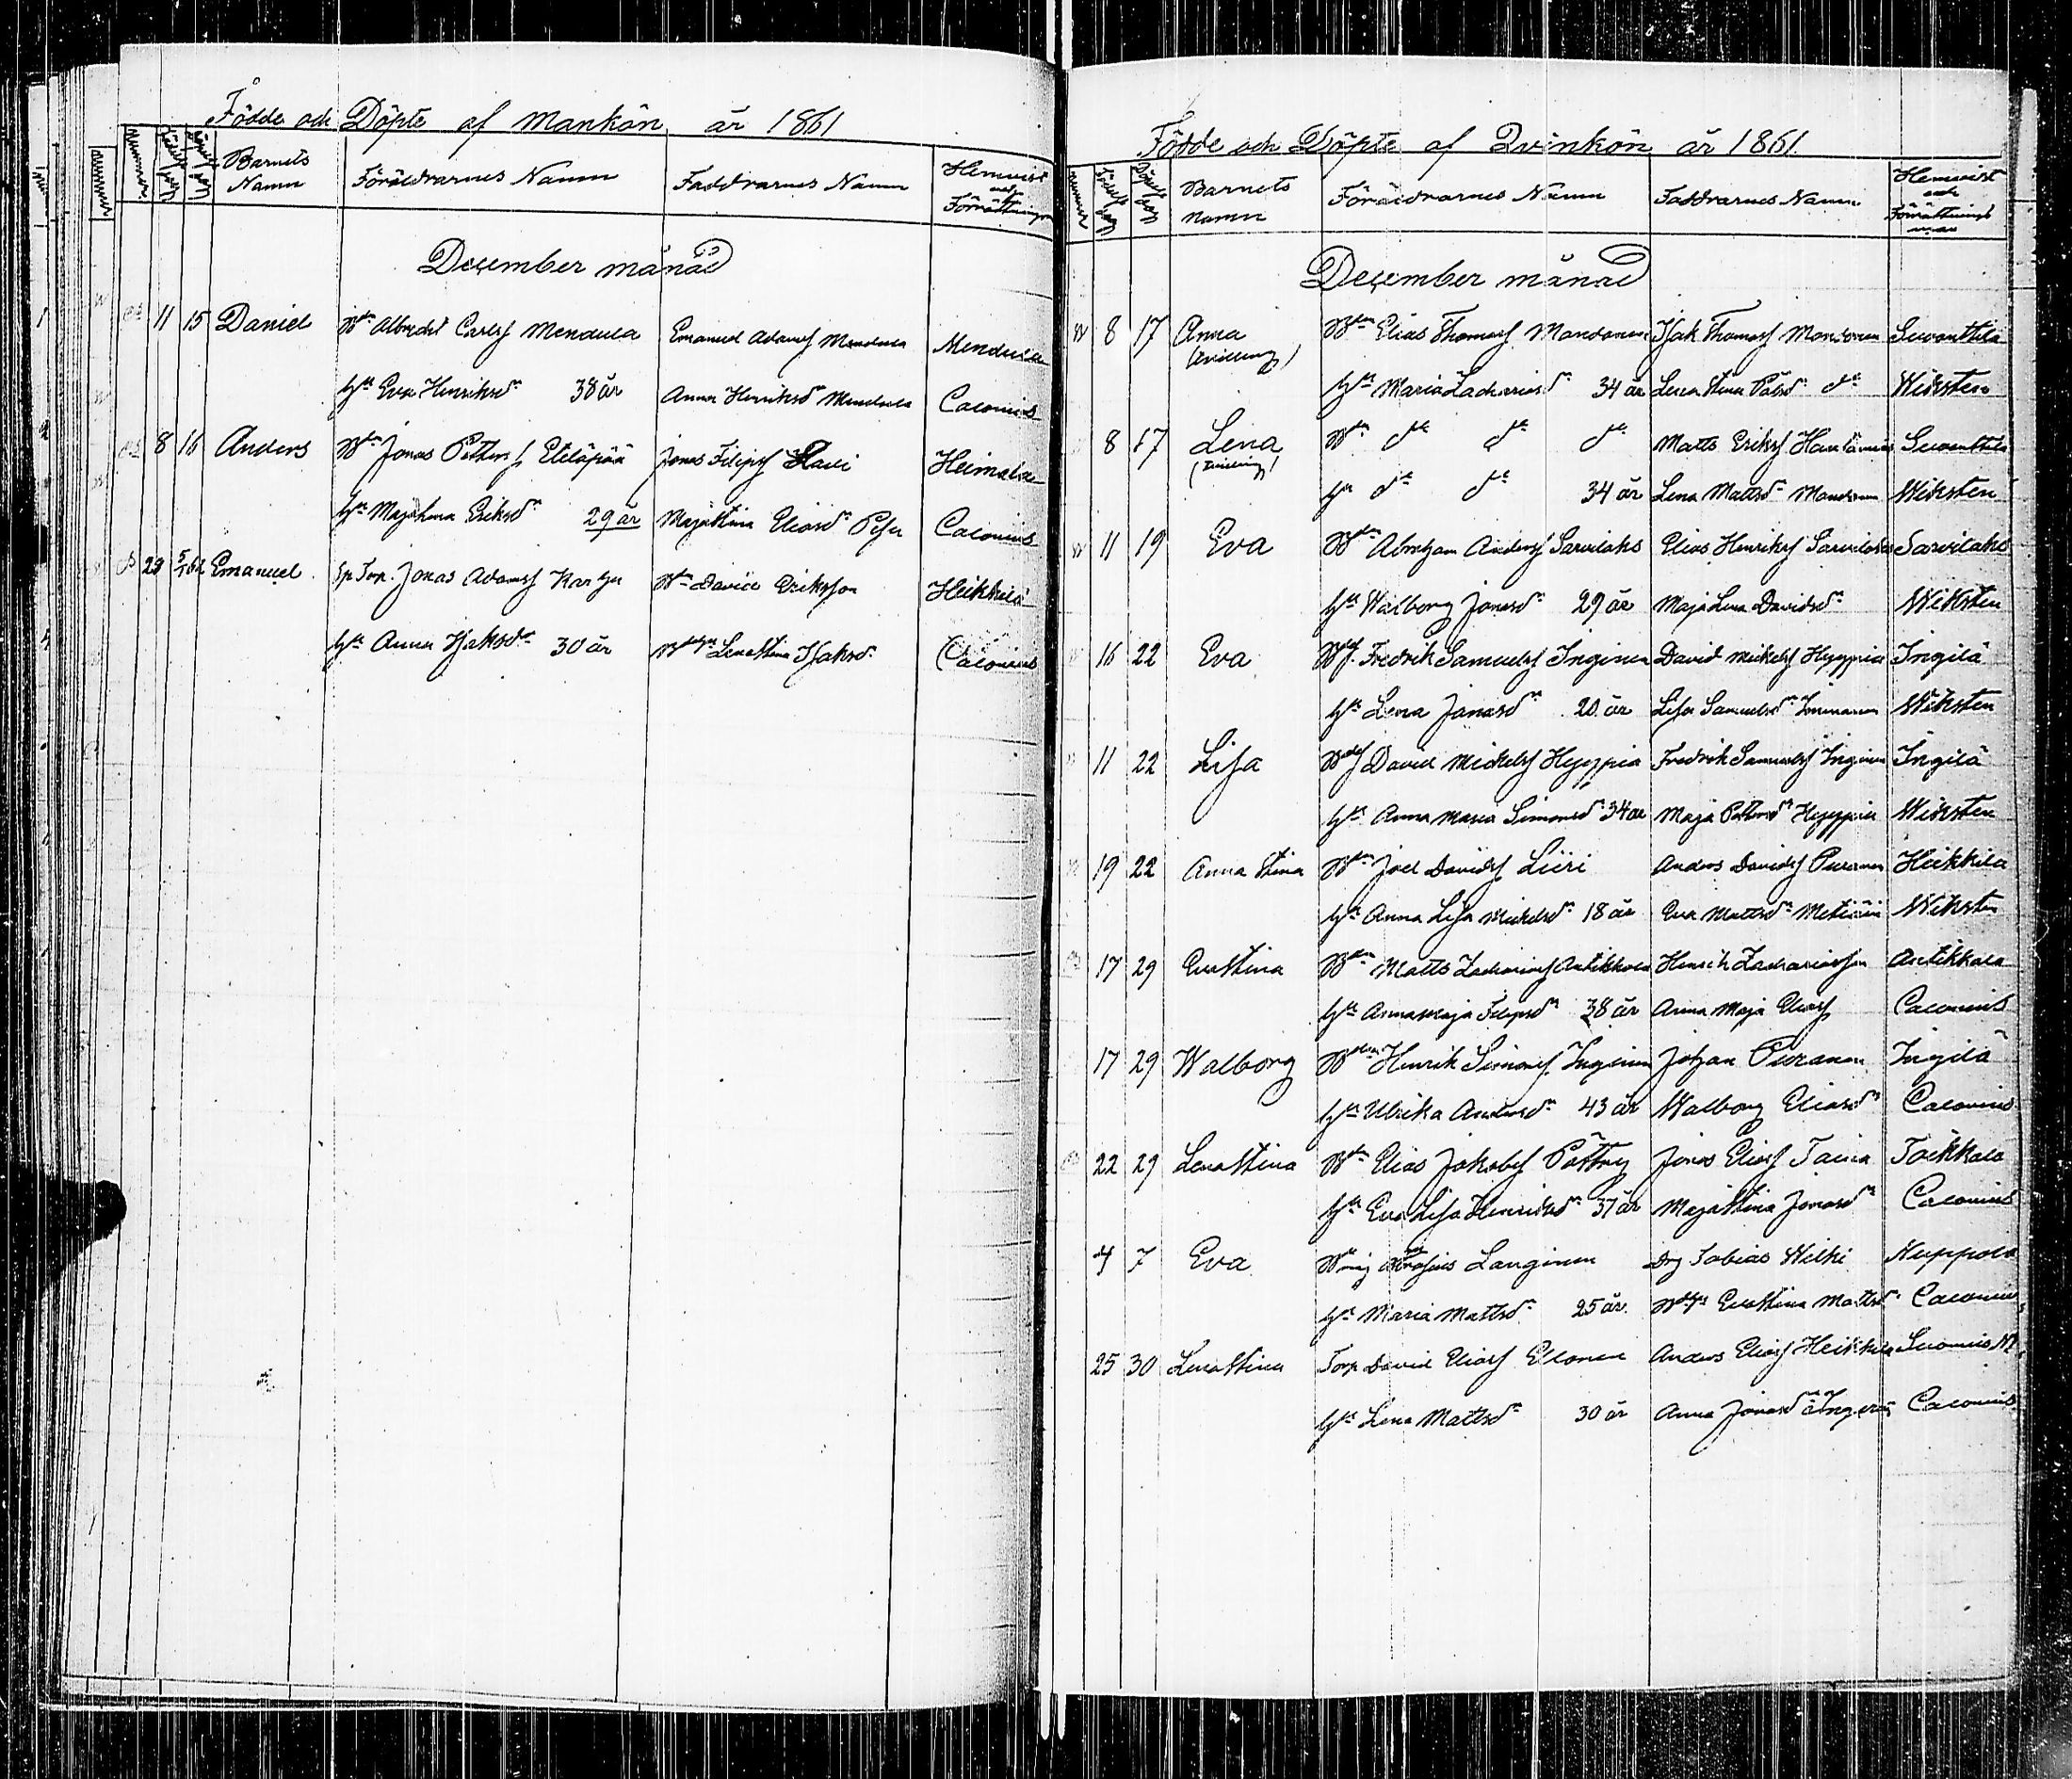 Födde och Döpte af Mankön år 1861
Nummer Född Döpt Barnets Namn Föräldrarnes Namn Faddrarnes Namn Hemvist och Förrättningsman
December månad
11 15 Daniel Bdn Albrecht Carlsf Mendula Emanuel Adamsf Mendula Mendula
hu Eva Henriksdr 38 år Anna Henriksdr Mendula Calonius
8 16 Anders Bdn Jonas Petters f Eteläpää Jonas Filipsf Heimala
hu Maja Lena Eriksdr 29 år Maja Stina Eliasdr Calonius
29 5/1 62 Emanuel Sp Torp. Jonas Adamsf Bdn David Eriksson Heikkilä
hu Anna Isaksdr 30 år Lena Stina Isaksdr Calonius
Födde och Döpte af Qvinkön år 1861
Nummer Född Döpt Barnets Namn Föräldrarnes Namn Faddrarnes Namn Hemvist och Förrättningsman
December månad
8 17 Anna Bdn Elias Thomasf Mandonen Isak Thomasf Mandonen Suvanttila
(tvilling) hu Maria Zachariasdr 34 år Lena Stina dr Wiksten
8 17 Lena Bdn do do do Matts Eriksf Suvanttila
(tvilling) hu do do 34 år Lena Mattsdr Mandonen Wiksten
11 19 Eva Bdn Abraham Andersf Sarvilaks Elias Henriksf Sarvilaks Sarvilaks
hu Walborg Jonasdr 29 år Maja Lena Davidsdr Wiksten
16 22 Eva Fredrik Samuelsf Inginen David Mickelsf Hyyppiä Ingilä
hu Lena Jonasdr 20 år Lisa Samuelsdr Wiksten
11 22 Lisa David Mickelsf Hyyppiä Fredrik Samuelsf Inginen Ingilä
hu Anna Maria Simonsdr 34 år Maja Pettersdr Hyyppiä Wiksten
19 22 Anna Stina Bdn Joel Davidsf Liiri Anders Davidsf Puranen Heikkilä
hu Anna Lisa Mickelsdr 18 år Eva Mattsdr Wiksten
17 29 Eva Stina Bdn Matts Zachariasf Antikkala Henrik Zachariasson Antikkala
hu Anna Maja Filipsdr 38 år Anna Maja Eliasf Calonius
17 29 Walborg Bdn Henrik Simonsf Inginen Johan Puranen Ingilä
hu Ulrika Andersdr 43 år Walborg Eliasdr Calonius
22 29 Lena Stina Bdn Elias Jakobsf Pöttry Jonas Eliasf Taina Toikkala
hu Eva Lisa Henriksdr 37 år Maja Stina Jonasdr Calonius
4 7 Eva Langinen Drg Tobias Wilki Kuppola
hu Maria Mattsdr 25 år Eva Stina Mattsdr Calonius
25 30 Lena Stina Torp David Eliasf Ellonen Anders Eliasf Heikkilä
hu Lena Mattsdr 30 år Anna Jonasdr Calonius